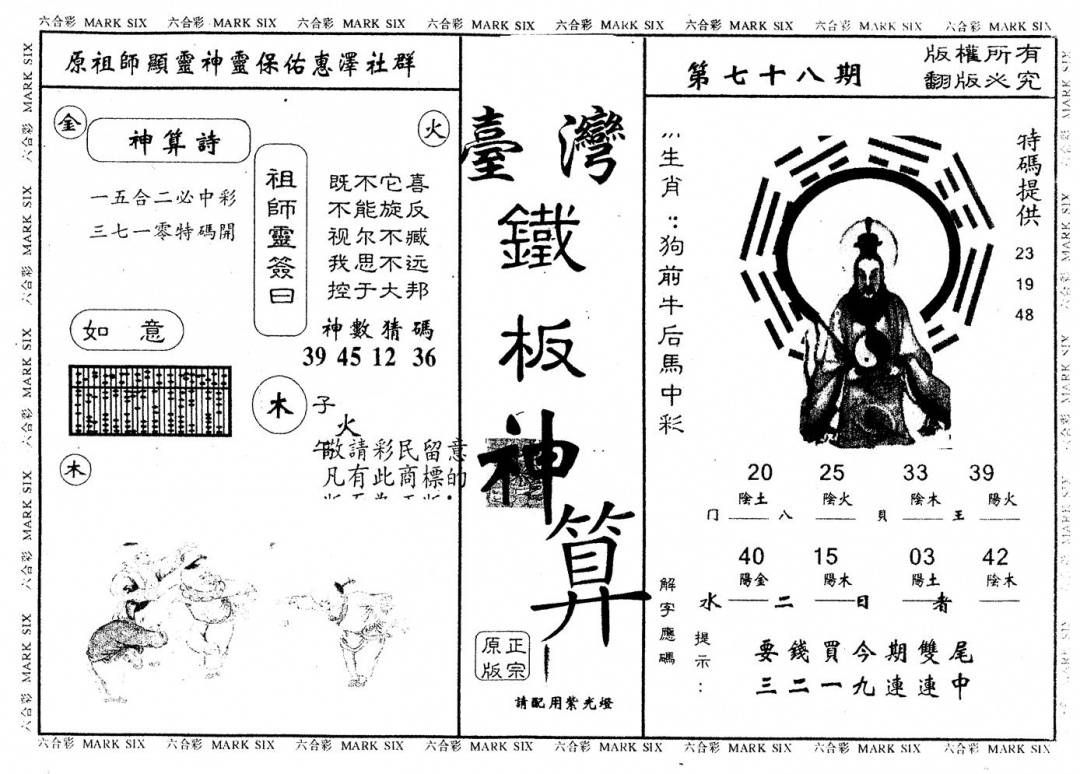 六合彩 MARK SIX 六合彩 MARK SIX 六合彩 MARK SIX 六合彩 MARK SIX 六合彩 MARK SIX 六合彩 MARK SIX 六合彩 MARK SIX 六合彩 MARK SIX
六合彩 MARK SIX 六合彩 MARK SIX 六合彩 MARK SIX 六合彩 MARK SIX 六合彩 MARK SIX
原祖師顯靈神靈保佑惠澤社群
金
神算詩
火
一五合二必中彩
三七一零特碼開
祖師靈簽曰
既不它喜
不能旋反
视尔不臧
我思不远
控于大邦
神數猜碼
39 45 12 36
如意
木
子
火
午
敬請彩民留意
凡有此商標的
木
臺灣
鐵
板
神
算
正宗
原版
請配用紫光燈
第七十八期
版權所有
翻版必究
生肖：狗前牛后馬中彩
特碼提供
23
19
48
20 25 33 39
陰土 陰火 陰木 陽火
门 八 貝 王
40 15 03 42
陽金 陽木 陽土 陰木
水 二 日 者
解字應碼
提示：
要錢買今期雙尾
三二一九連連中
六合彩 MARK SIX 六合彩 MARK SIX 六合彩 MARK SIX 六合彩 MARK SIX 六合彩 MARK SIX 六合彩 MARK SIX 六合彩 MARK SIX 六合彩 MARK SIX